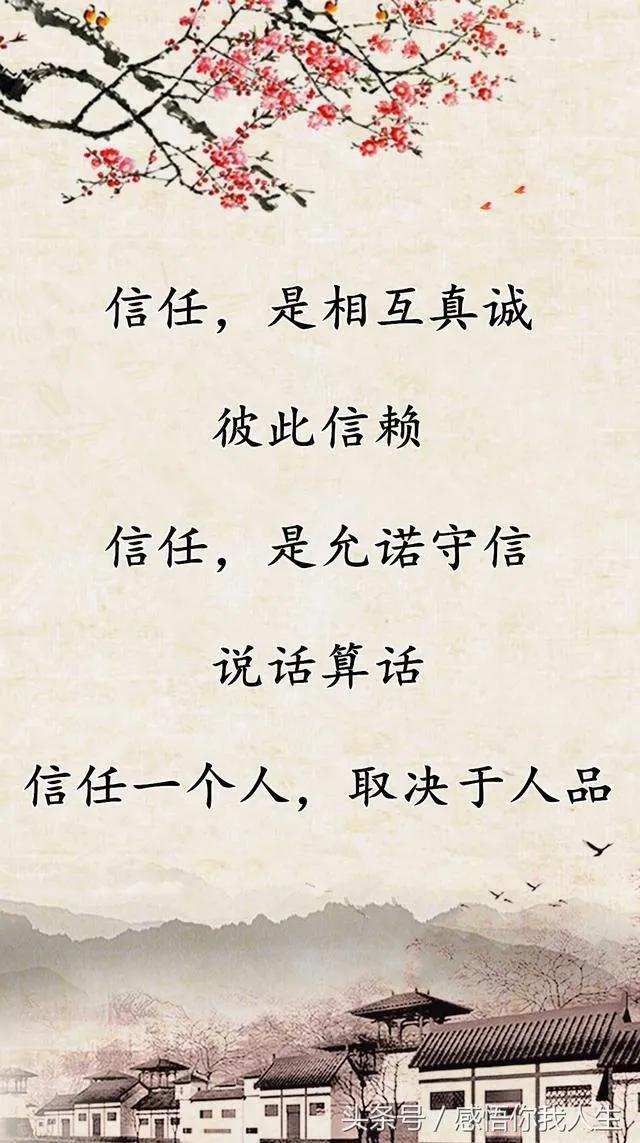 信任，是相互真诚
彼此信赖
信任，是允诺守信
说话算话
信任一个人，取决于人品
头条号/感悟你我人生